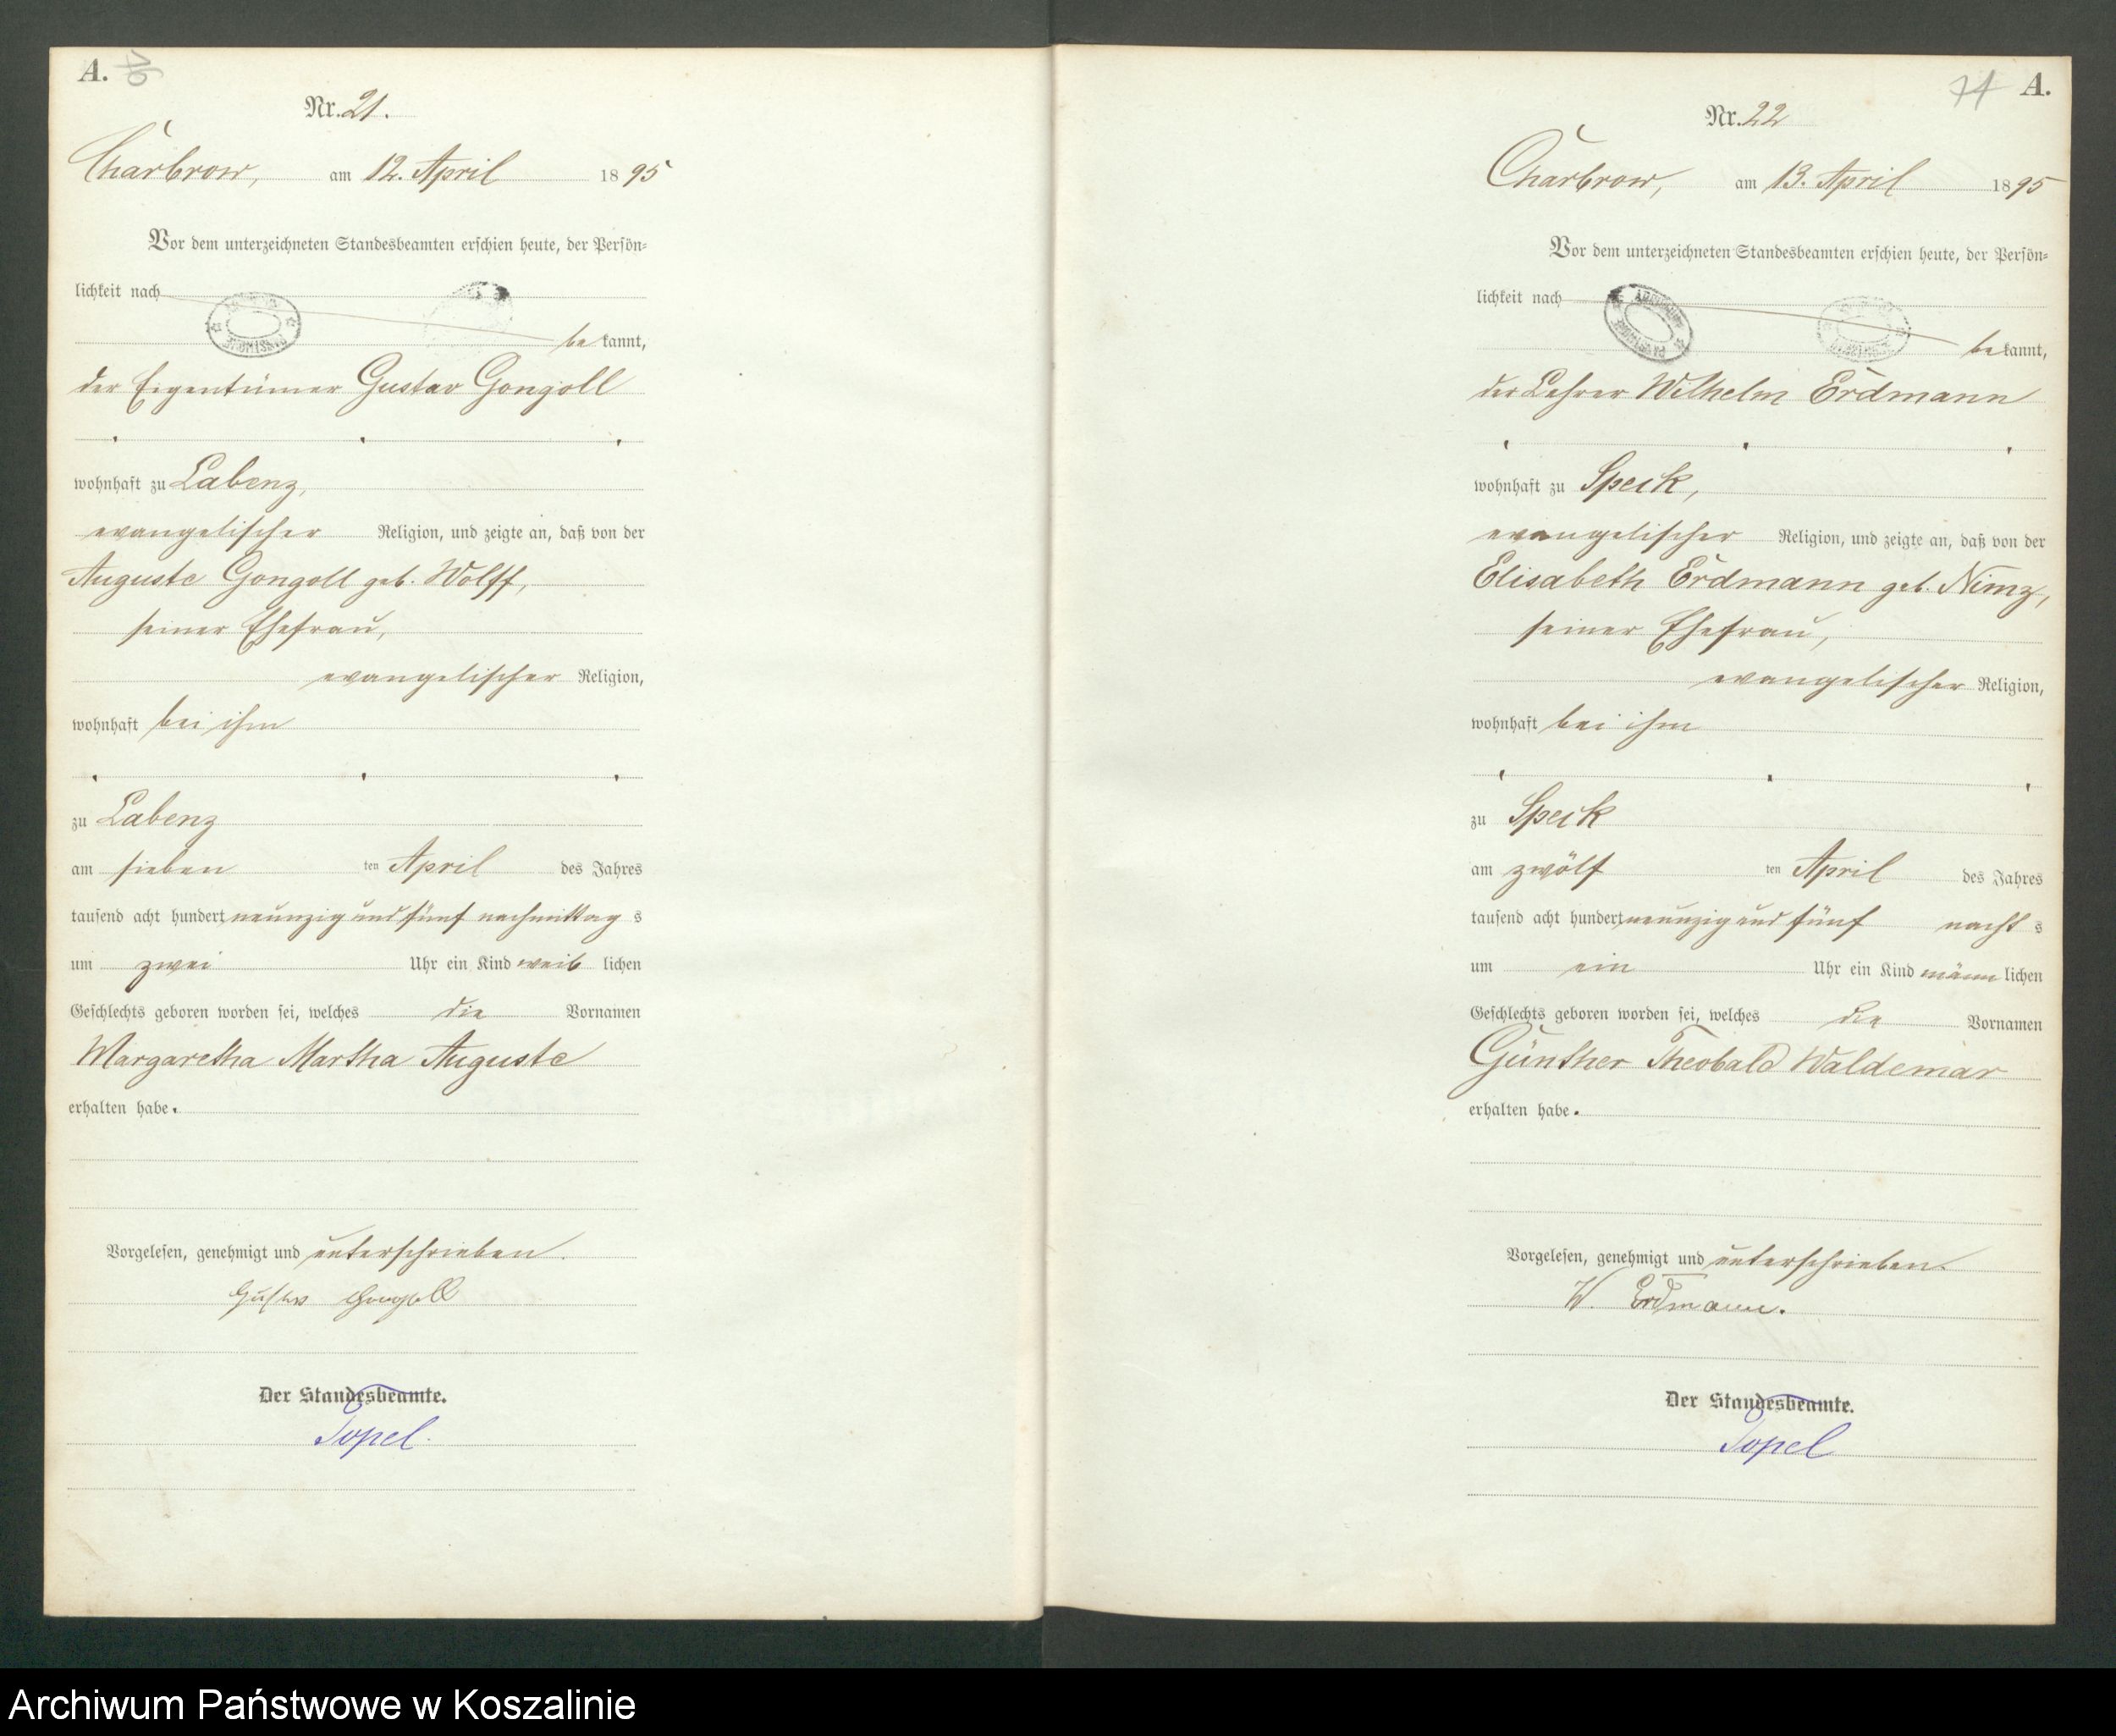 A.
Nr. 21.
Charbrow, am 12. April 1895
Vor dem unterzeichneten Standesbeamten erschien heute, der Persön=
lichkeit nach
bekannt,
der Eigentümer Gustav Gongoll
wohnhaft zu Labenz,
evangelischer Religion, und zeigte an, daß von der
Auguste Gongoll geb. Wolff,
seiner Ehefrau,
evangelischer Religion,
wohnhaft bei ihm
zu Labenz
am sieben ten April des Jahres
tausend acht hundert neunzig und fünf nachmittag s
um zwei Uhr ein Kind weib lichen
Geschlechts geboren worden sei, welches die Vornamen
Margaretha Martha Auguste
erhalten habe.
Vorgelesen, genehmigt und unterschrieben.
Gustav Gongoll
Der Standesbeamte.
Topel.
74 A.
Nr. 22
Charbrow, am 13. April 1895
Vor dem unterzeichneten Standesbeamten erschien heute, der Persön=
lichkeit nach
bekannt,
der Lehrer Wilhelm Erdmann
wohnhaft zu Speck,
evangelischer Religion, und zeigte an, daß von der
Elisabeth Erdmann geb. Nimz,
seiner Ehefrau,
evangelischer Religion,
wohnhaft bei ihm
zu Speck
am zwölf ten April des Jahres
tausend acht hundert neunzig und fünf nacht s
um ein Uhr ein Kind männ lichen
Geschlechts geboren worden sei, welches die Vornamen
Günther Theobald Waldemar
erhalten habe.
Vorgelesen, genehmigt und unterschrieben.
W. Erdmann.
Der Standesbeamte.
Topel
Archiwum Państwowe w Koszalinie